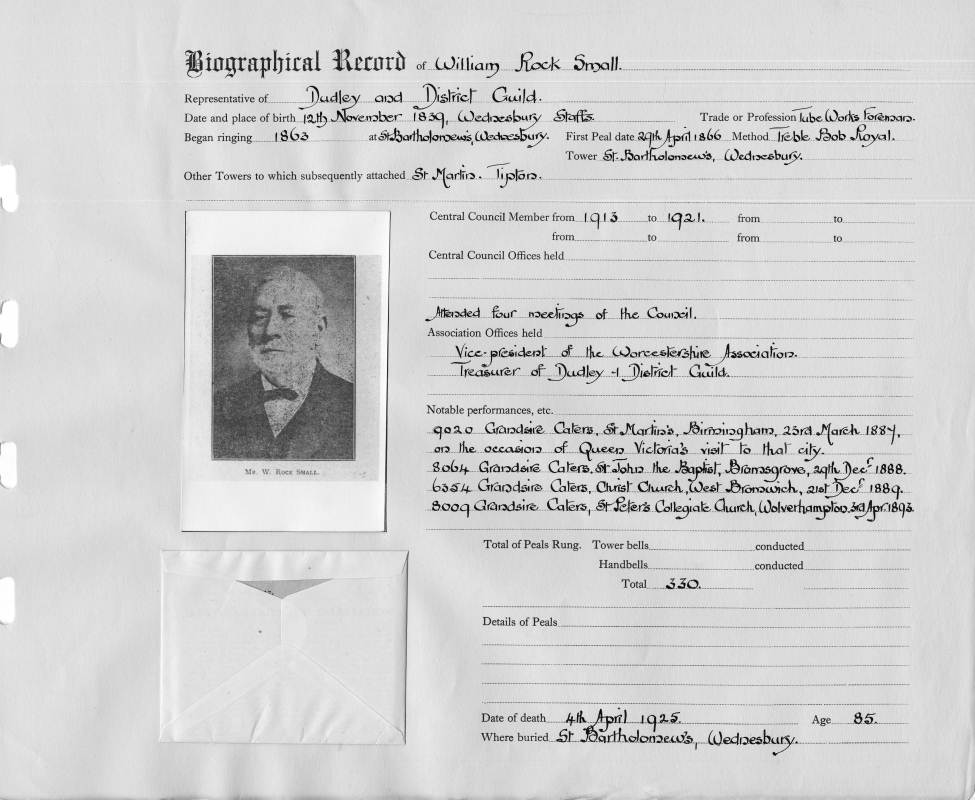 Biographical Record of William Rock Small.
Representative of Dudley and District Guild.
Date and place of birth 12th November 1839, Wednesbury Staffs. Trade or Profession Tube Works Foreman.
Began ringing 1863 at St Bartholomew's, Wednesbury. First Peal date 29th April 1866 Method Treble Bob Royal.
Tower St. Bartholomew's, Wednesbury.
Other Towers to which subsequently attached St Martin. Tipton.
Central Council Member from 1913 to 1921. from to
from to from to
Central Council Offices held
Attended four meetings of the Council.
Association Offices held
Vice-president of the Worcestershire Association.
Treasurer of Dudley & District Guild.
Notable performances, etc.
9020 Grandsire Caters, St Martin's, Birmingham, 23rd March 1887,
on the occasion of Queen Victoria's visit to that city.
8064 Grandsire Caters. St John the Baptist, Bromsgrove, 29th Decr 1888.
6354 Grandsire Caters, Christ Church, West Bromwich, 21st Decr 1889.
8009 Grandsire Caters, St Peter's Collegiate Church, Wolverhampton. 3rd Apr. 1893.
Mr. W. Rock Small.
Total of Peals Rung. Tower bells conducted
Handbells conducted
Total 330.
Details of Peals
Date of death 4th April 1925. Age 85.
Where buried St Bartholomew's, Wednesbury.